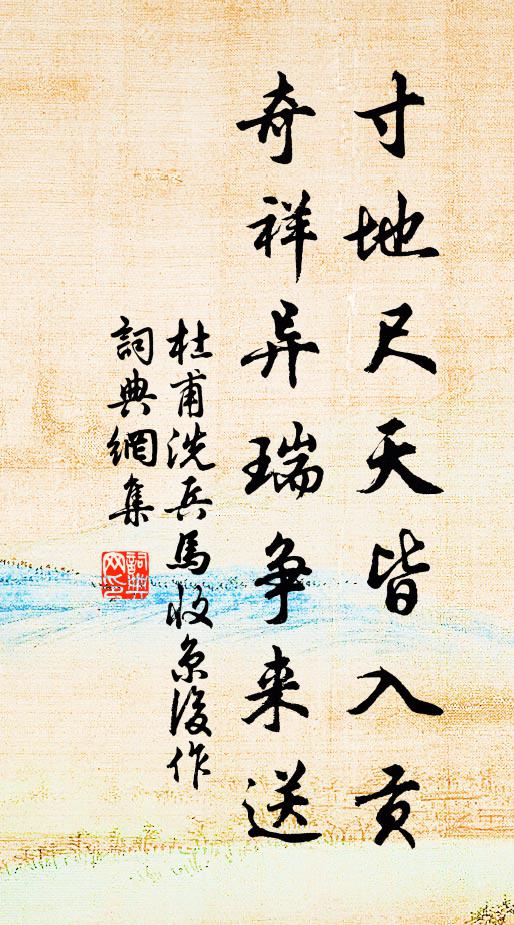 寸地尺天皆入贡
奇祥异瑞争来送
杜甫洗兵馬收京後作
詞典網集